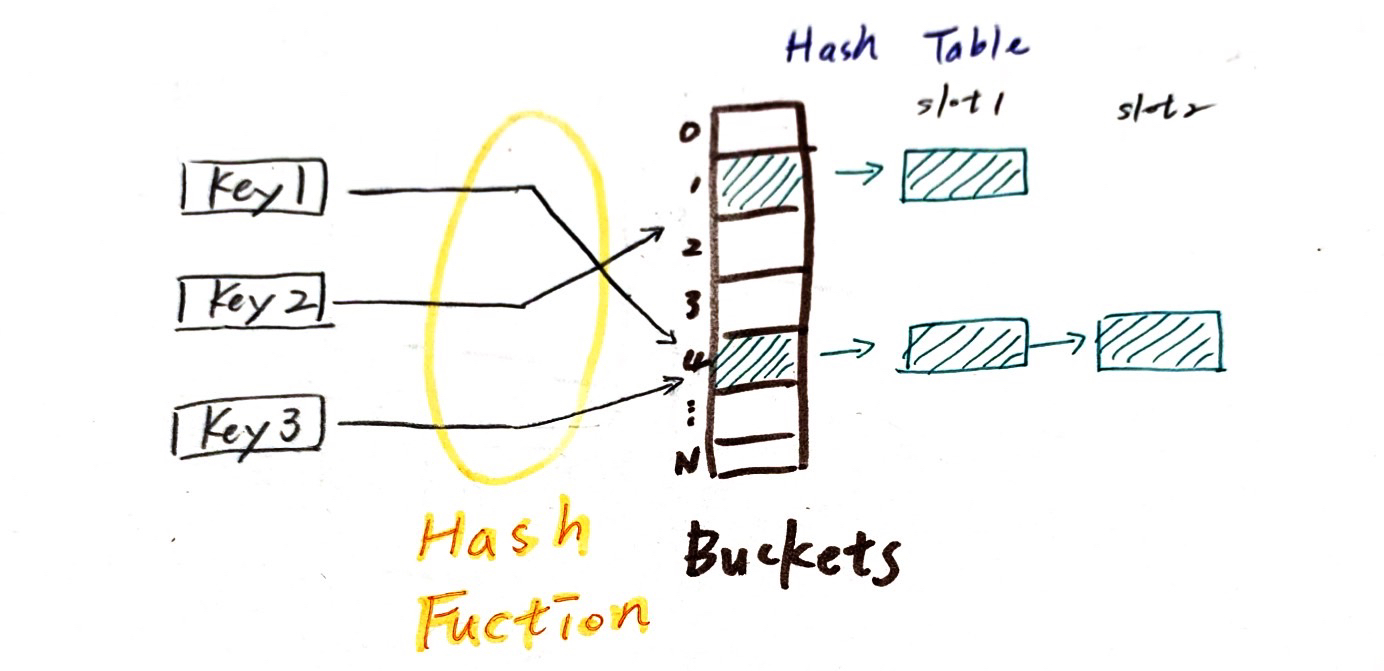 Hash Table
slot1 slot2
Key1
Key2
Key3
0
1
2
3
4
⋮
N
Hash
Fuction
Buckets